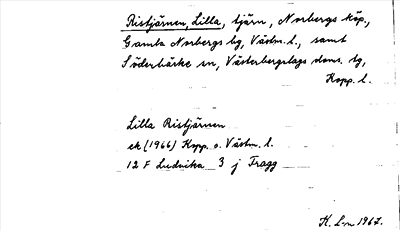 Ristjärnen, Lilla, tjärn, Norbergs köp.,
Gamla Norbergs tg, Västm. l., samt
Söderbärke sn, Västerbergslags doms. tg,
Kopp. l.
Lilla Ristjärnen
ek (1966) Kopp. o. Västm. l.
12 F Ludvika 3 j Fragg
K. L-m 1967.